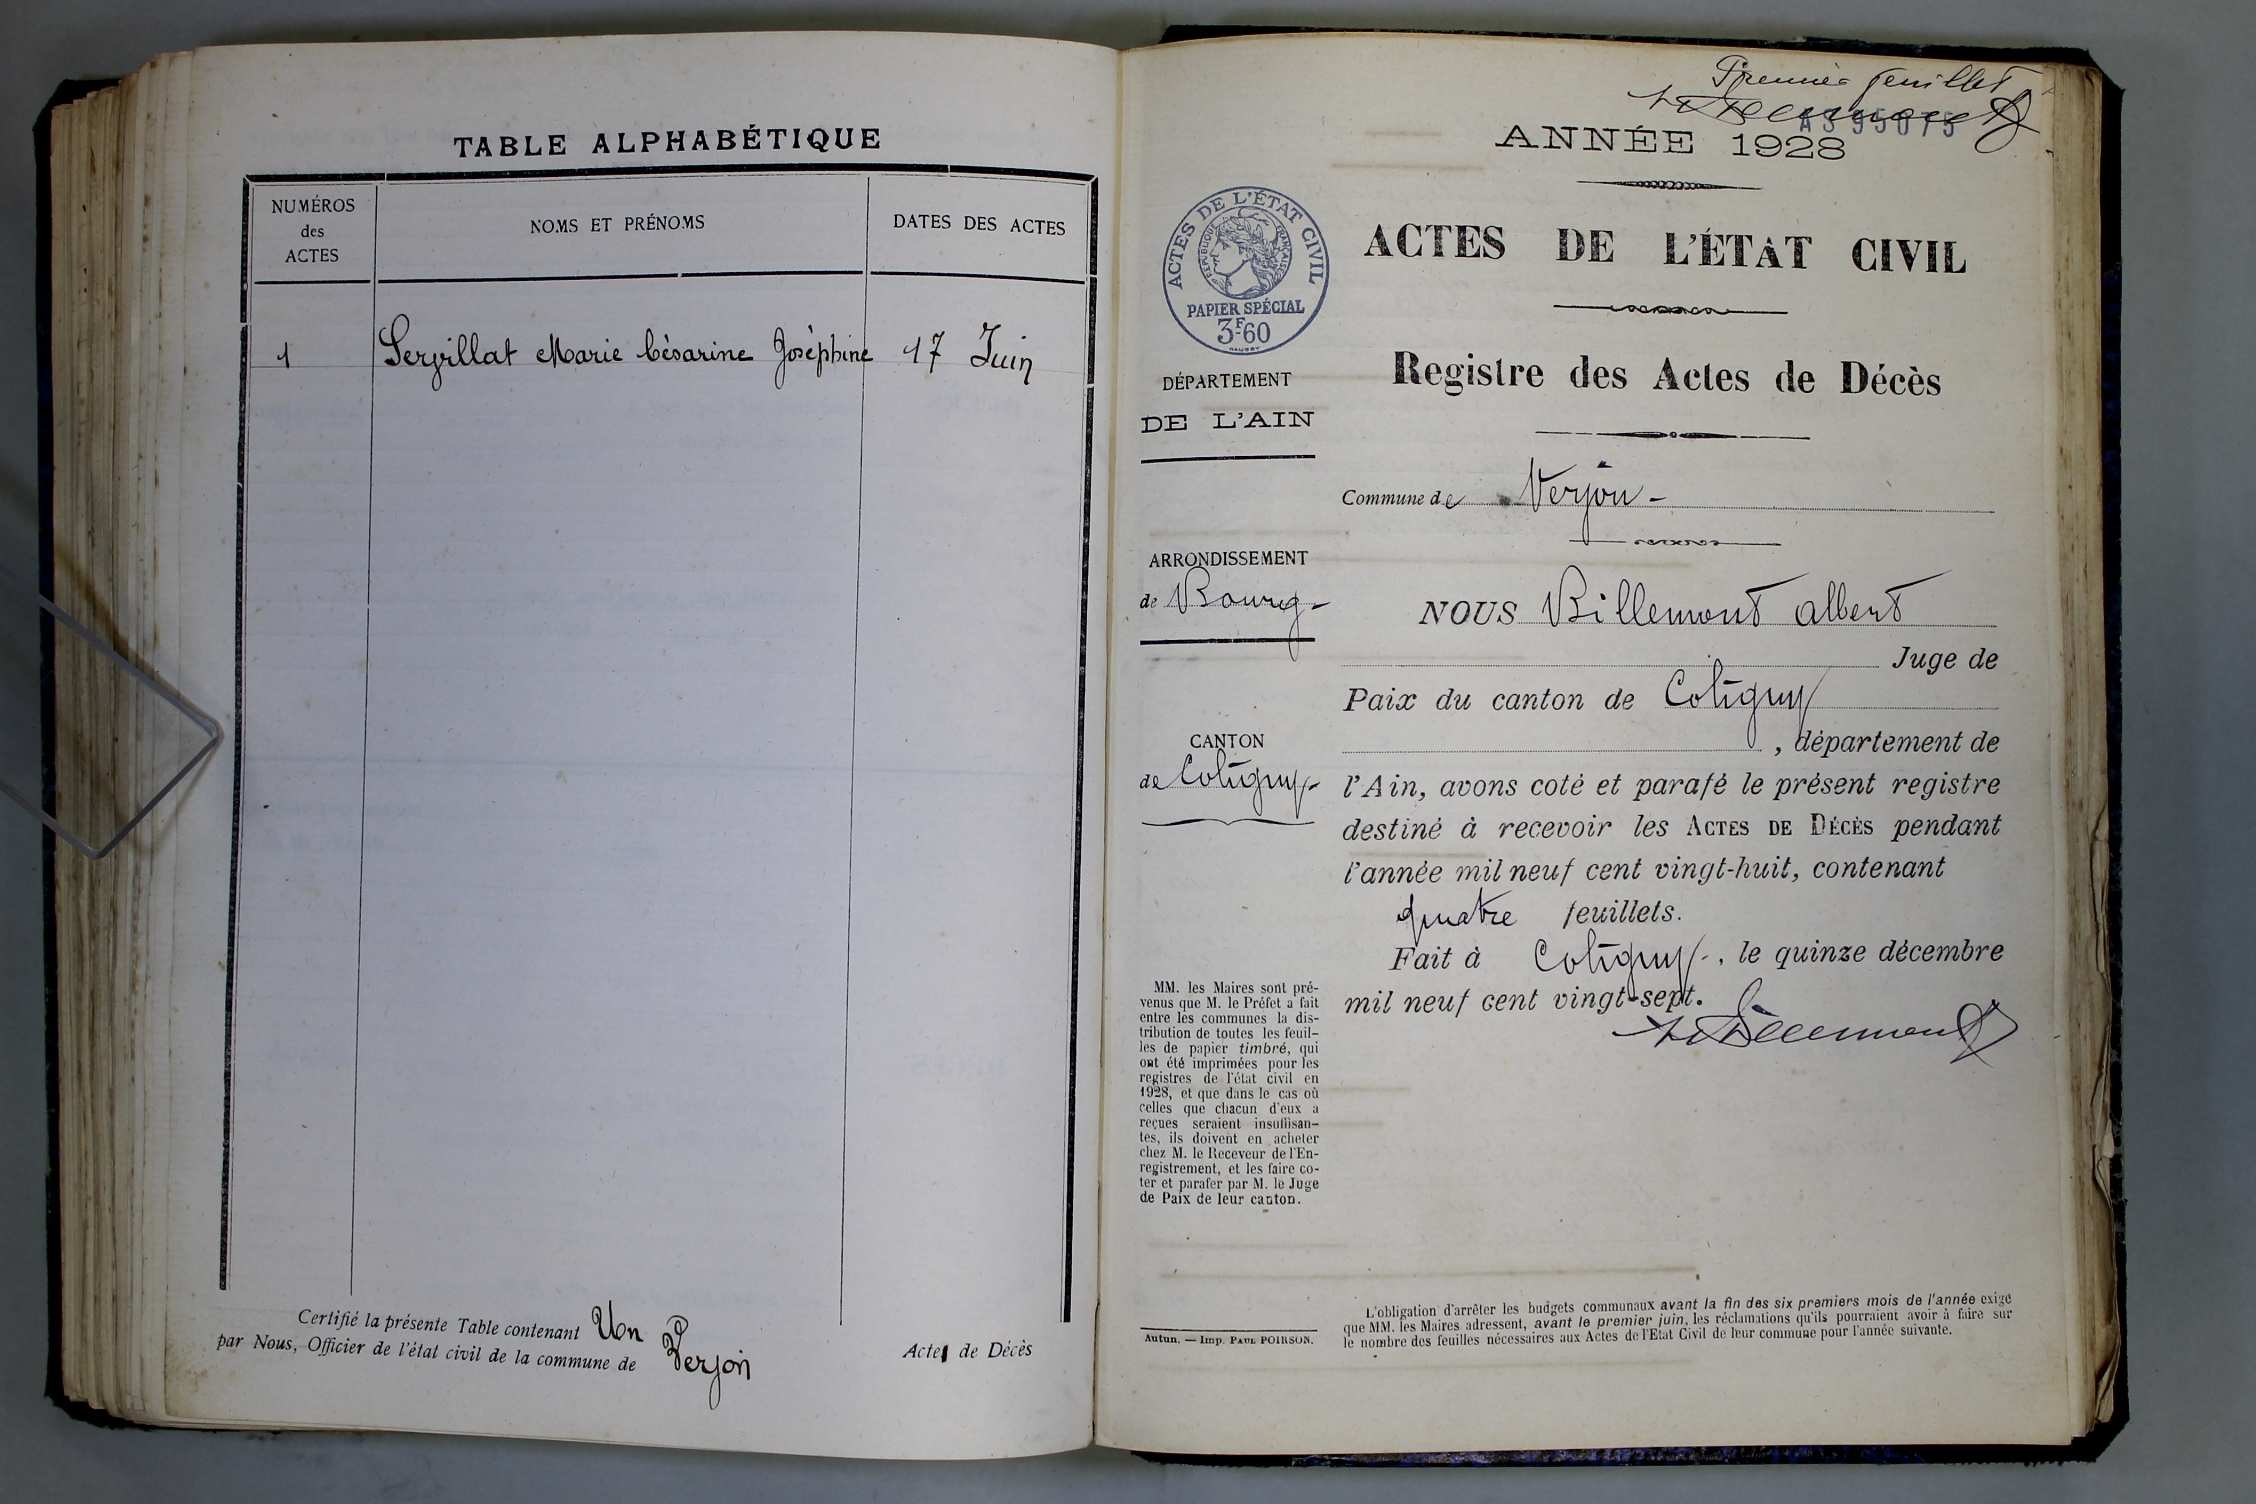 TABLE ALPHABÉTIQUE
NUMÉROS
des
ACTES
NOMS ET PRÉNOMS
DATES DES ACTES
1 Servillat Marie Césarine Joséphine 17 Juin
Certifié la présente Table contenant Un
par Nous, Officier de l'état civil de la commune de Verjon
Acte de Décès
Premier feuillet
ANNÉE 1928
ACTES DE L'ÉTAT CIVIL
RÉPUBLIQUE FRANÇAISE
PAPIER SPÉCIAL
3F60
DÉPARTEMENT
DE L'AIN
ARRONDISSEMENT
de Bourg-
CANTON
de Coligny-
MM. les Maires sont pré-
venus que M. le Préfet a fait
entre les communes la dis-
tribution de toutes les feuil-
les de papier timbré, qui
ont été imprimées pour les
registres de l'état civil en
1928, et que dans le cas où
celles que chacun d'eux a
reçues seraient insuffisan-
tes, ils doivent en acheter
chez M. le Receveur de l'En-
registrement, et les faire co-
ter et parafer par M. le Juge
de Paix de leur canton.
Autun. — Imp. PAUL POIRSON.
ACTES DE L'ÉTAT CIVIL
Registre des Actes de Décès
Commune de Verjon-
NOUS Billemont Albert
Juge de
Paix du canton de Coligny
, département de
l'Ain, avons coté et parafé le présent registre
destiné à recevoir les ACTES DE DÉCÈS pendant
l'année mil neuf cent vingt-huit, contenant
quatre feuillets.
Fait à Coligny-, le quinze décembre
mil neuf cent vingt-sept.
L'obligation d'arrêter les budgets communaux avant la fin des six premiers mois de l'année exige
que MM. les Maires adressent, avant le premier juin, les réclamations qu'ils pourraient avoir à faire sur
le nombre des feuilles nécessaires aux Actes de l'Etat Civil de leur commune pour l'année suivante.